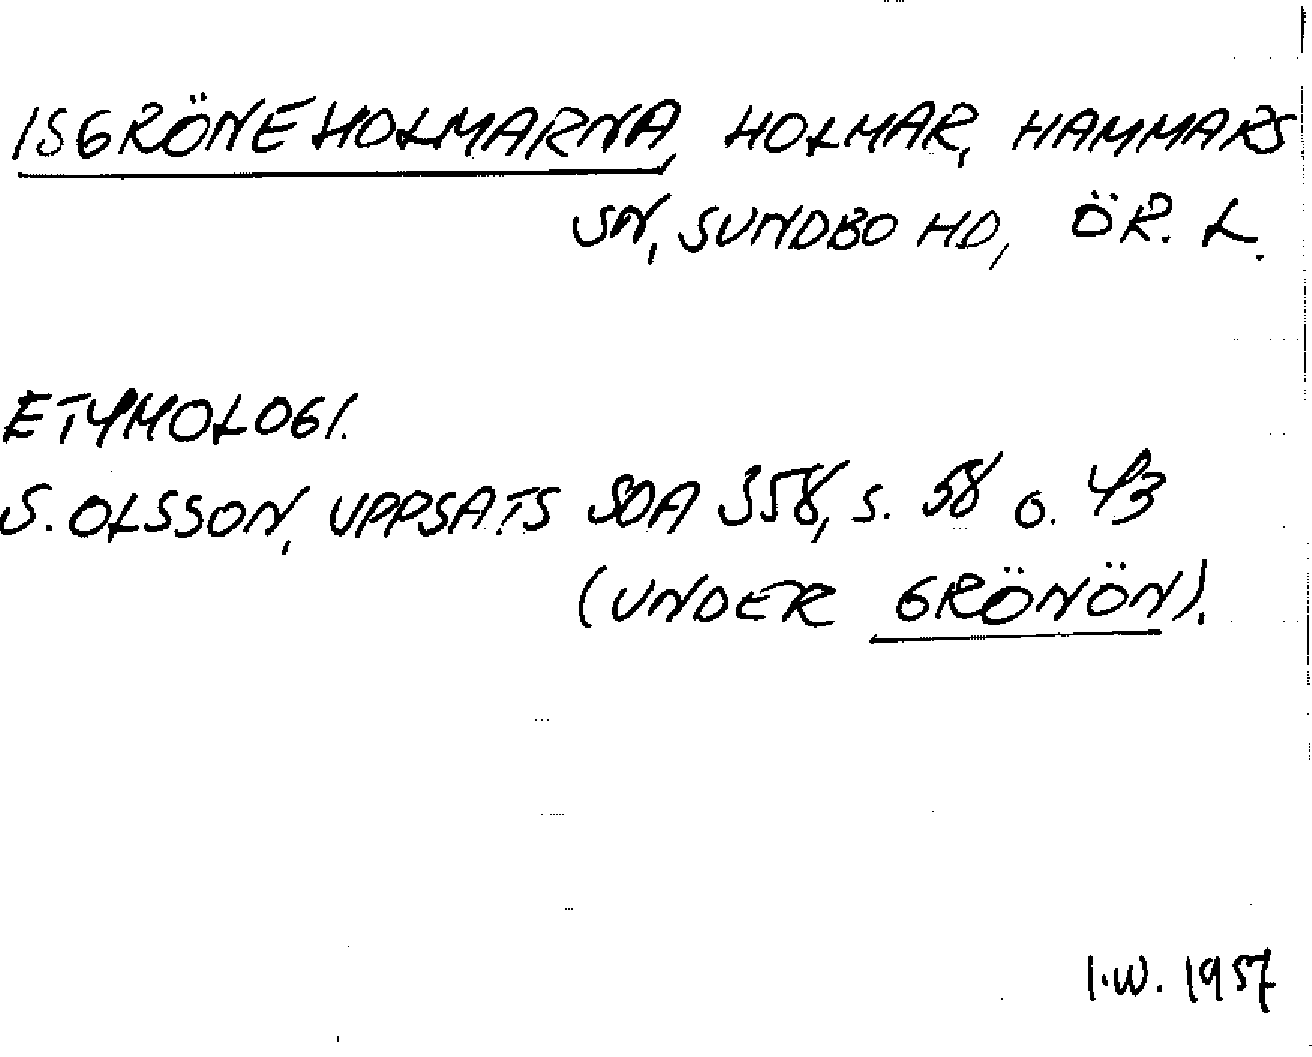 ISGRÖNEHOLMARNA, HOLMAR, HAMMARS
SN, SUNDBO HD, ÖR. L.
ETYMOLOGI.
S. OLSSON, UPPSATS SOA 358, S. 38 O. 43
(UNDER GRÖNÖN).
I.W. 1957